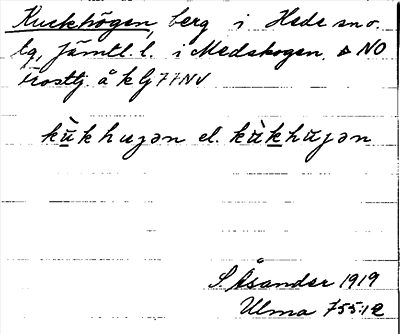 Kuckhögen, berg i Hede sn o.
tg, Jämtl. l. i Medskogen. NO
å kbl 77 NV
kùkhuɡən el. kùkhùjən
S. Åsander 1919
Ulma 755:12